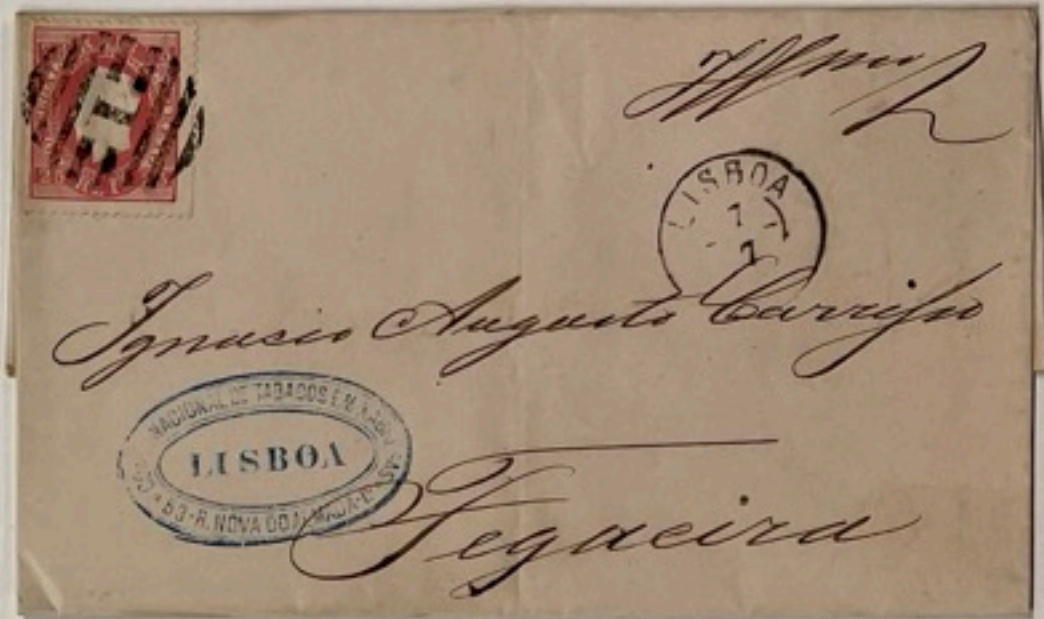 Illmo Sr
LISBOA
7
7
Ignacio Augusto Carrisso
NACIONAL DE TABACOS E.M. XABR
LISBOA
63 - R. NOVA DO ALMADA
Figueira